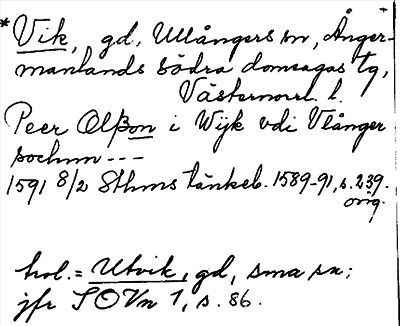 * Vik, gd, Ullångers sn, Ånger-
manlands södra domsagas tg,
Västernorrl. l.
Peer Olßon i Wijk vdi Vlånger
sochnn ---
1591 8/2 Sthms tänkeb. 1589-91, s. 239.
orig.
hol. = Utvik, gd, sma sn;
jfr SOVn 1, s. 86.